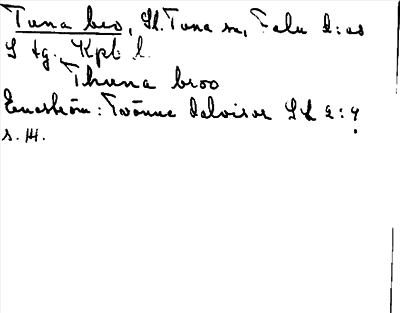 Tuna bro, St. Tuna sn, Falu d:as
S tg. Kpb l.
Thuna broo
Eneström: Twönne dalvisor SL 2:9
s. 14.